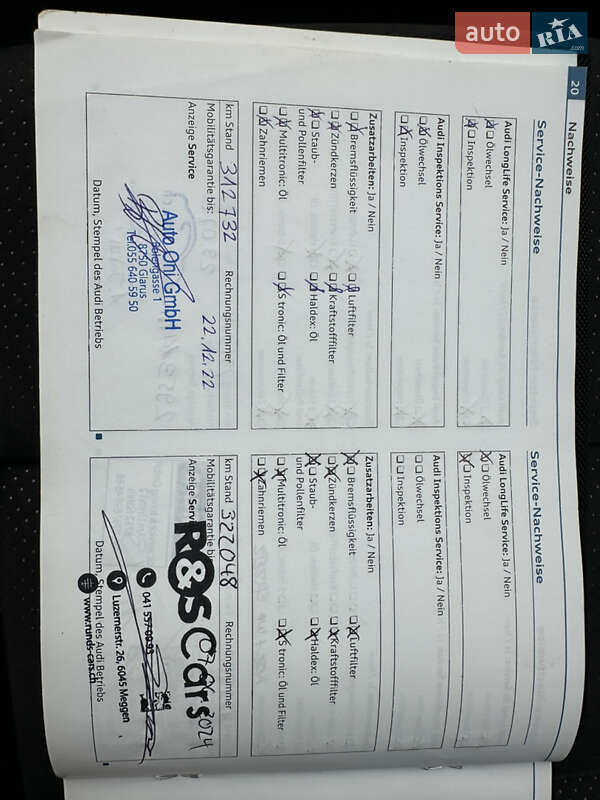 auto RIA.com
20
Nachweise
Service-Nachweise
Audi LongLife Service: Ja / Nein
Ölwechsel
Inspektion
Audi Inspektions Service: Ja / Nein
Ölwechsel
Inspektion
Zusatzarbeiten: Ja / Nein
Bremsflüssigkeit
Luftfilter
Zündkerzen
Kraftstofffilter
Staub-
und Pollenfilter
Haldex: Öl
Multitronic: Öl
S tronic: Öl und Filter
Zahnriemen
km Stand 312 732
Rechnungsnummer
Mobilitätsgarantie bis:
22.12.22
Anzeige Service
Auto Oni GmbH
8750 Glarus
Tel.055 640 59 50
Datum, Stempel des Audi Betriebs
Service-Nachweise
Audi LongLife Service: Ja / Nein
Ölwechsel
Inspektion
Audi Inspektions Service: Ja / Nein
Ölwechsel
Inspektion
Zusatzarbeiten: Ja / Nein
Bremsflüssigkeit
Luftfilter
Zündkerzen
Kraftstofffilter
Staub-
und Pollenfilter
Haldex: Öl
Multitronic: Öl
S tronic: Öl und Filter
Zahnriemen
km Stand 322048
Rechnungsnummer
Mobilitätsgarantie bis
Anzeige
R&S Cars
041 557 00 93
Luzernerstr. 26, 6045 Meggen
www.runds-cars.ch
Datum, Stempel des Audi Betriebs